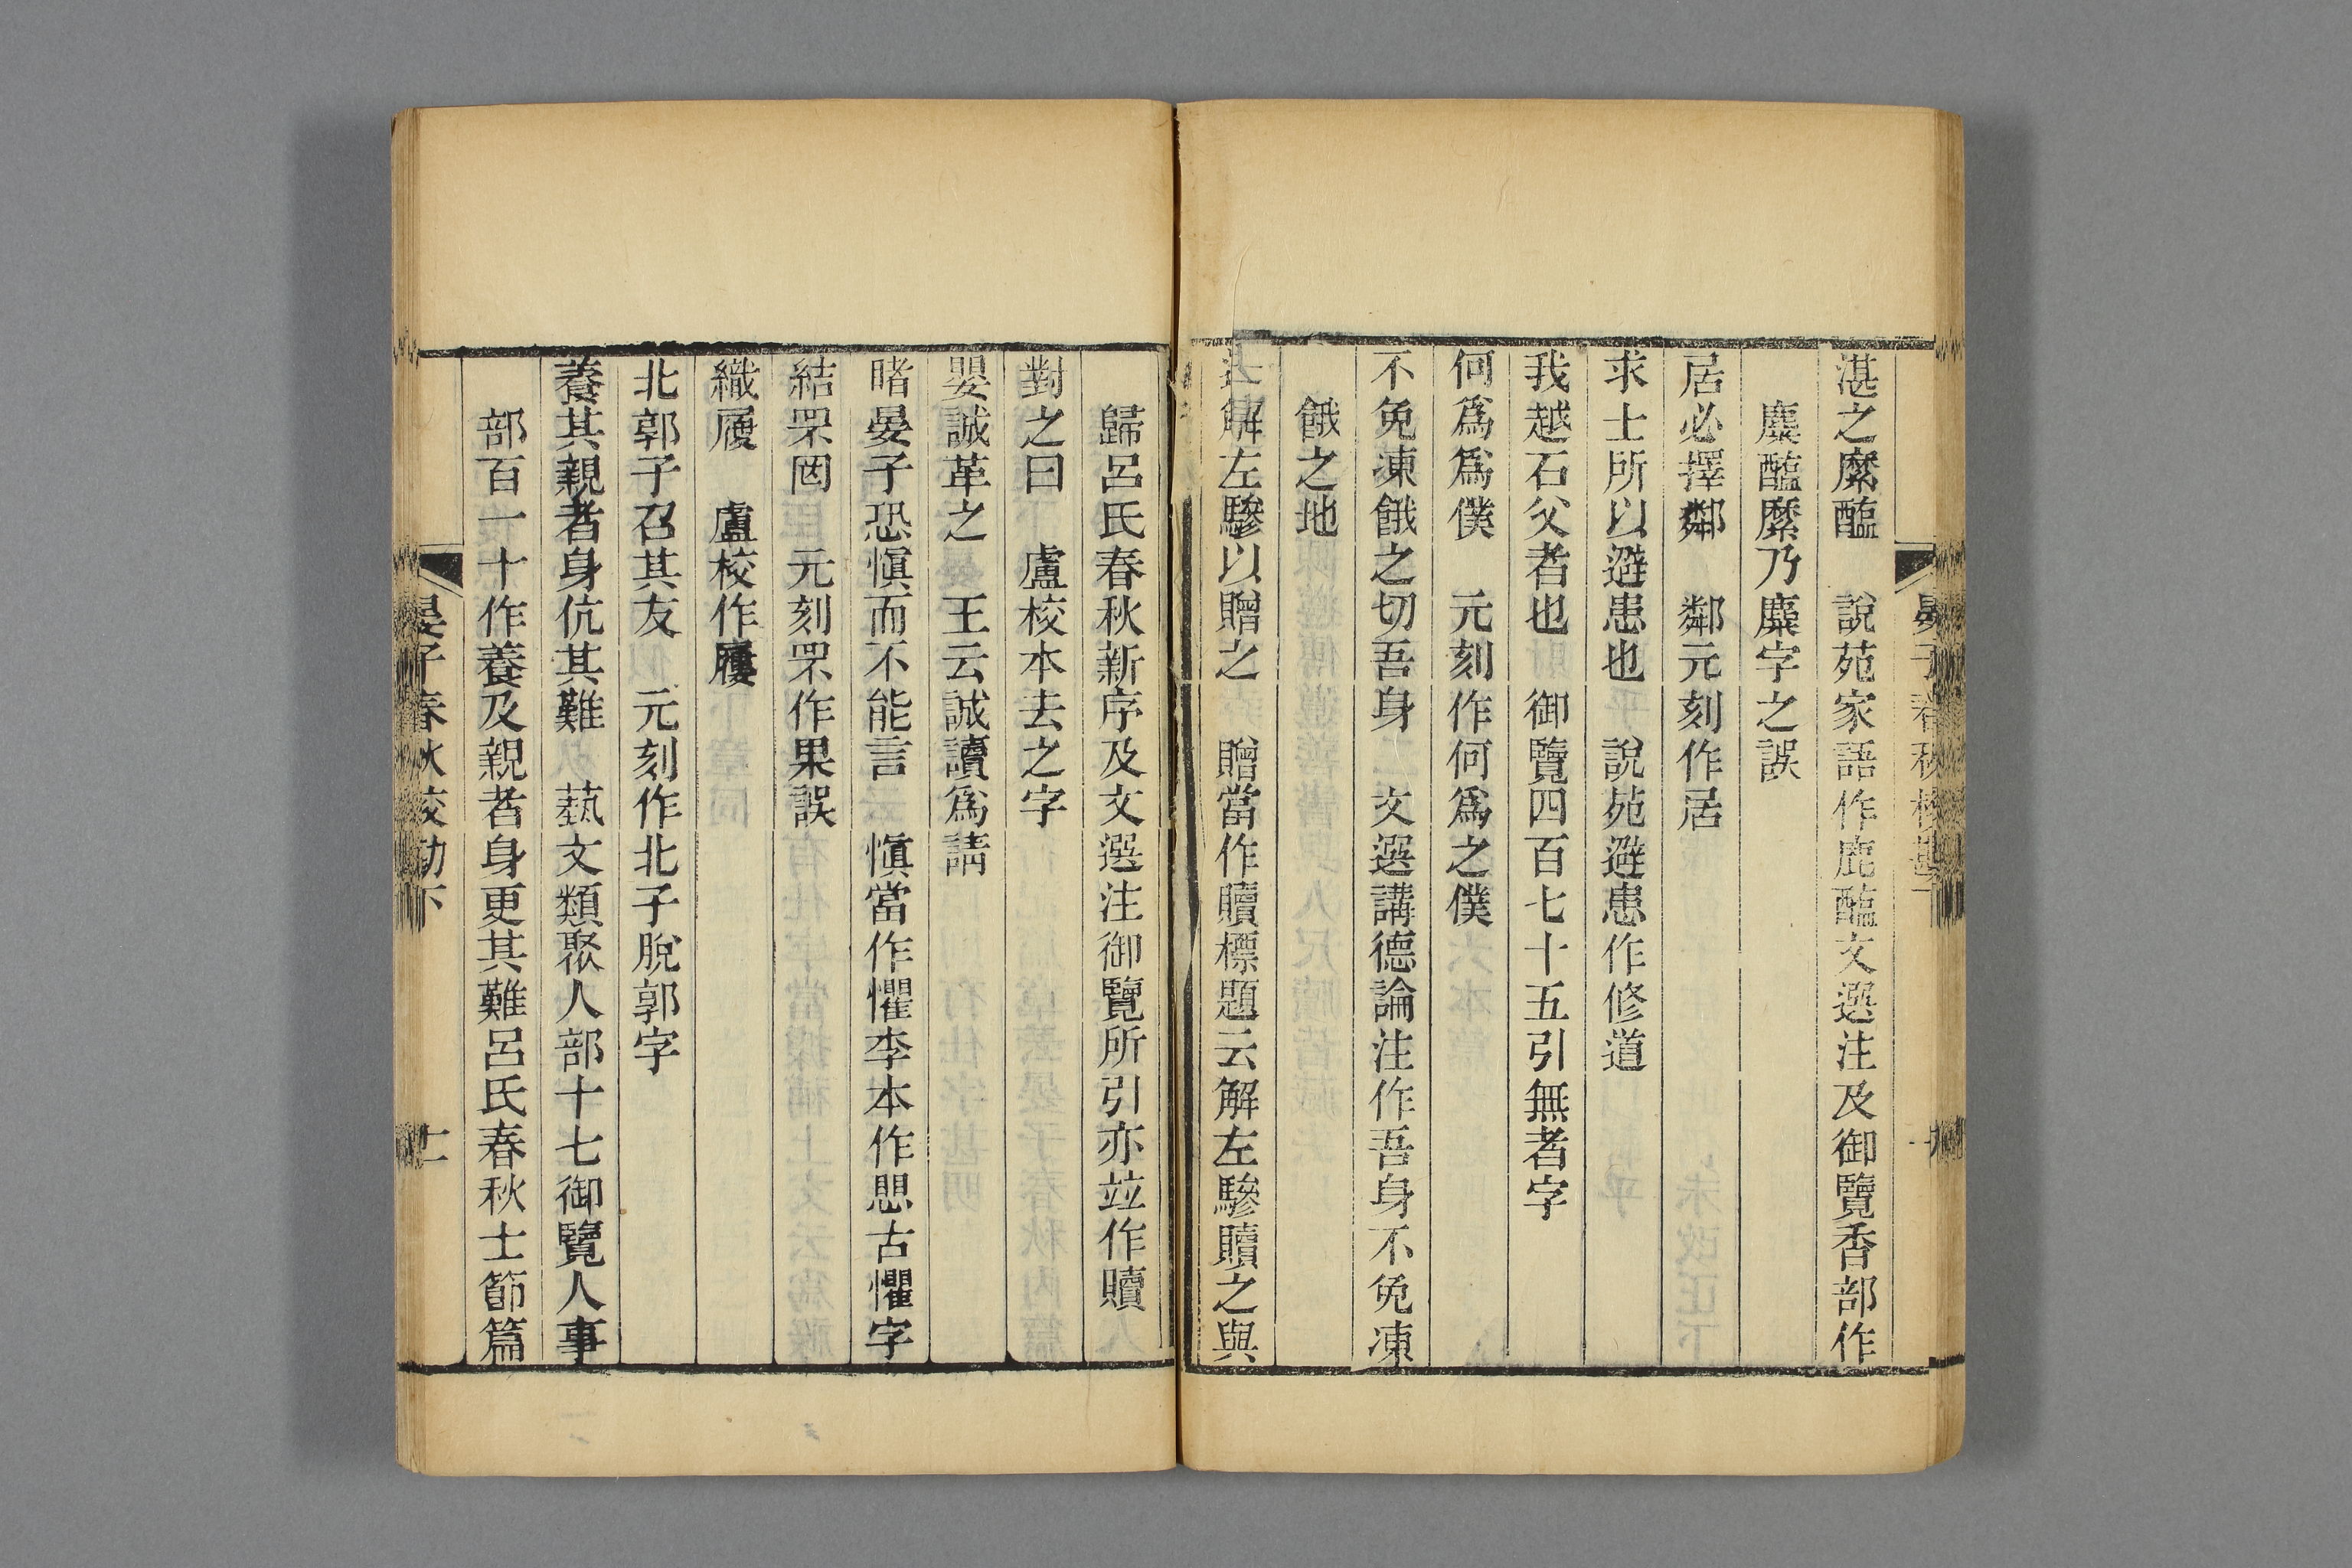 湛之縻醢　說苑家語作鹿醢文選注及御覽香部作
麋醢縻乃麋字之誤
居必擇鄰　鄰元刻作居
求士所以避患也　說苑避患作修道
我越石父者也　御覽四百七十五引無者字
何爲爲僕　元刻作何爲之僕
不免凍餓之切吾身　文選講德論注作吾身不免凍
餓之地
解左驂以贈之　贈當作贖標題云解左驂贖之與
歸呂氏春秋新序及文選注御覽所引亦竝作贖
對之曰　盧校本去之字
嬰誠革之　王云誠讀爲請
睹晏子恐愼而不能言　愼當作懼李本作思古懼字
結罘罔　元刻罘作果誤
織履　盧校作屨
北郭子召其友　元刻作北子脫郭字
養其親者身伉其難　藝文類聚人部十七御覽人事
部百一十作養及親者身更其難呂氏春秋士節篇
晏子春秋校勘下